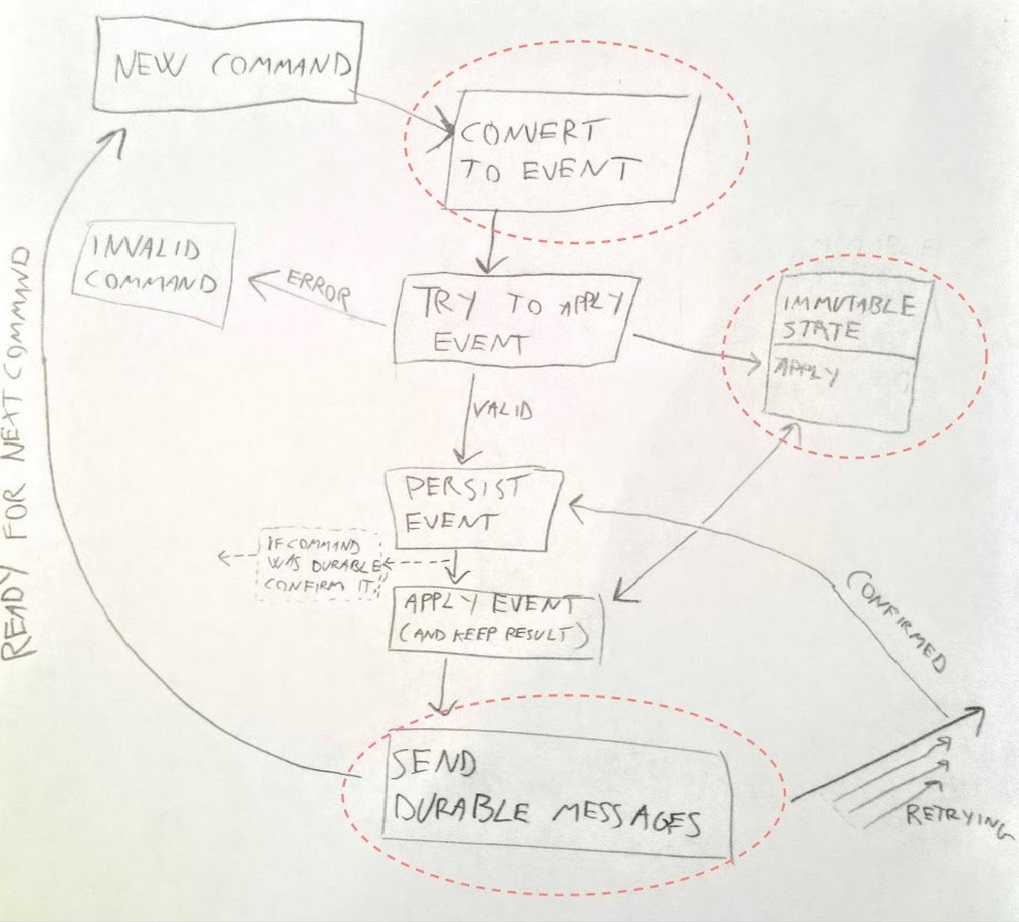 NEW COMMAND
CONVERT
TO EVENT
INVALID
COMMAND
ERROR
TRY TO APPLY
EVENT
IMMUTABLE
STATE
APPLY
VALID
PERSIST
EVENT
IF COMMAND
WAS DURABLE
CONFIRM IT
APPLY EVENT
(AND KEEP RESULT)
CONFIRMED
SEND
DURABLE MESSAGES
RETRYING
READY FOR NEXT COMMAND